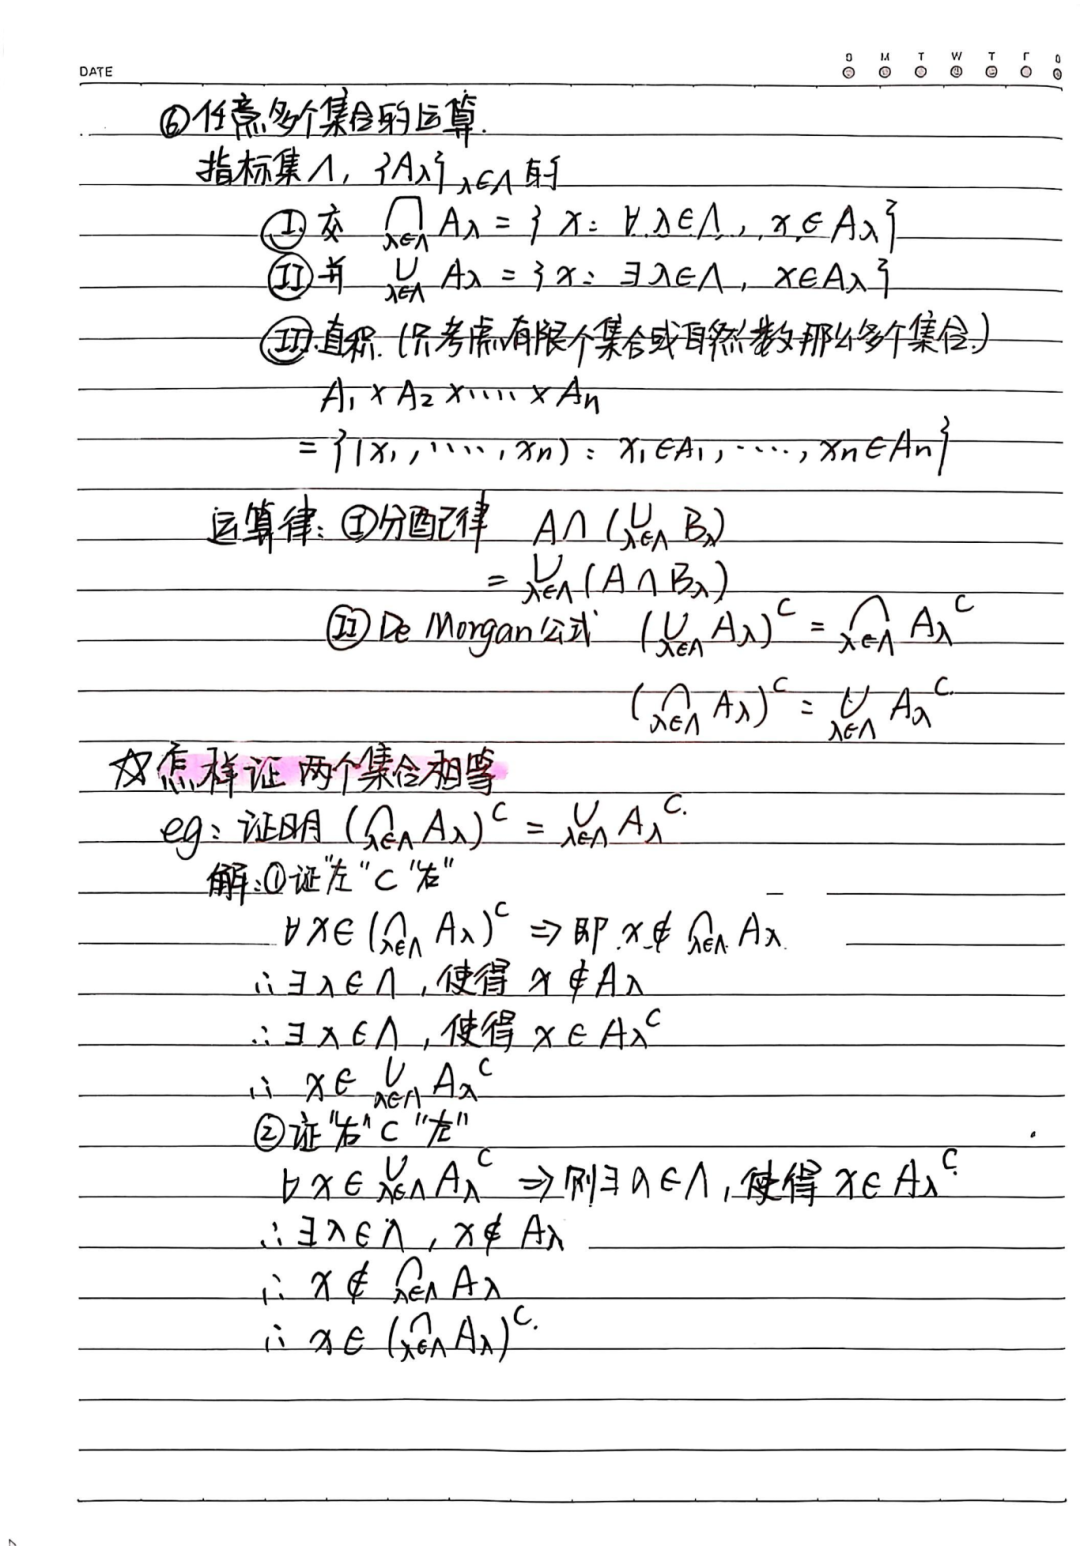 DATE
S M T W T F S
⑥任意多个集合的运算.
指标集Λ, {Aλ}λ∈Λ 的
Ⅰ. 交 ⋂λ∈Λ Aλ = { x: ∀λ∈Λ, x∈Aλ}
Ⅱ 并 ⋃λ∈Λ Aλ = {x: ∃λ∈Λ, x∈Aλ}
Ⅲ.直积.(只考虑有限个集合或自然数那么多个集合.)
A₁ × A₂ × ····· × Aₙ
= {(x₁, ·····, xₙ): x₁∈A₁, ·····, xₙ∈Aₙ}
运算律: Ⅰ分配律 A∩(⋃λ∈Λ Bλ)
= ⋃λ∈Λ (A∩Bλ)
Ⅱ De Morgan公式 (⋃λ∈Λ Aλ)ᶜ = ⋂λ∈Λ Aλᶜ
(⋂λ∈Λ Aλ)ᶜ = ⋃λ∈Λ Aλᶜ.
☆怎样证两个集合相等
eg: 证明 (⋂λ∈Λ Aλ)ᶜ = ⋃λ∈Λ Aλᶜ.
解:①证"左"⊂"右"
∀x∈(⋂λ∈Λ Aλ)ᶜ ⇒ 即 x∉⋂λ∈Λ Aλ.
∴∃λ∈Λ, 使得 x∉Aλ
∴∃λ∈Λ, 使得 x∈Aλᶜ
∴ x∈⋃λ∈Λ Aλᶜ
②证"右"⊂"左"
∀x∈⋃λ∈Λ Aλᶜ ⇒ 则∃λ∈Λ, 使得 x∈Aλᶜ.
∴∃λ∈Λ, x∉Aλ
∴ x∉⋂λ∈Λ Aλ
∴ x∈(⋂λ∈Λ Aλ)ᶜ.